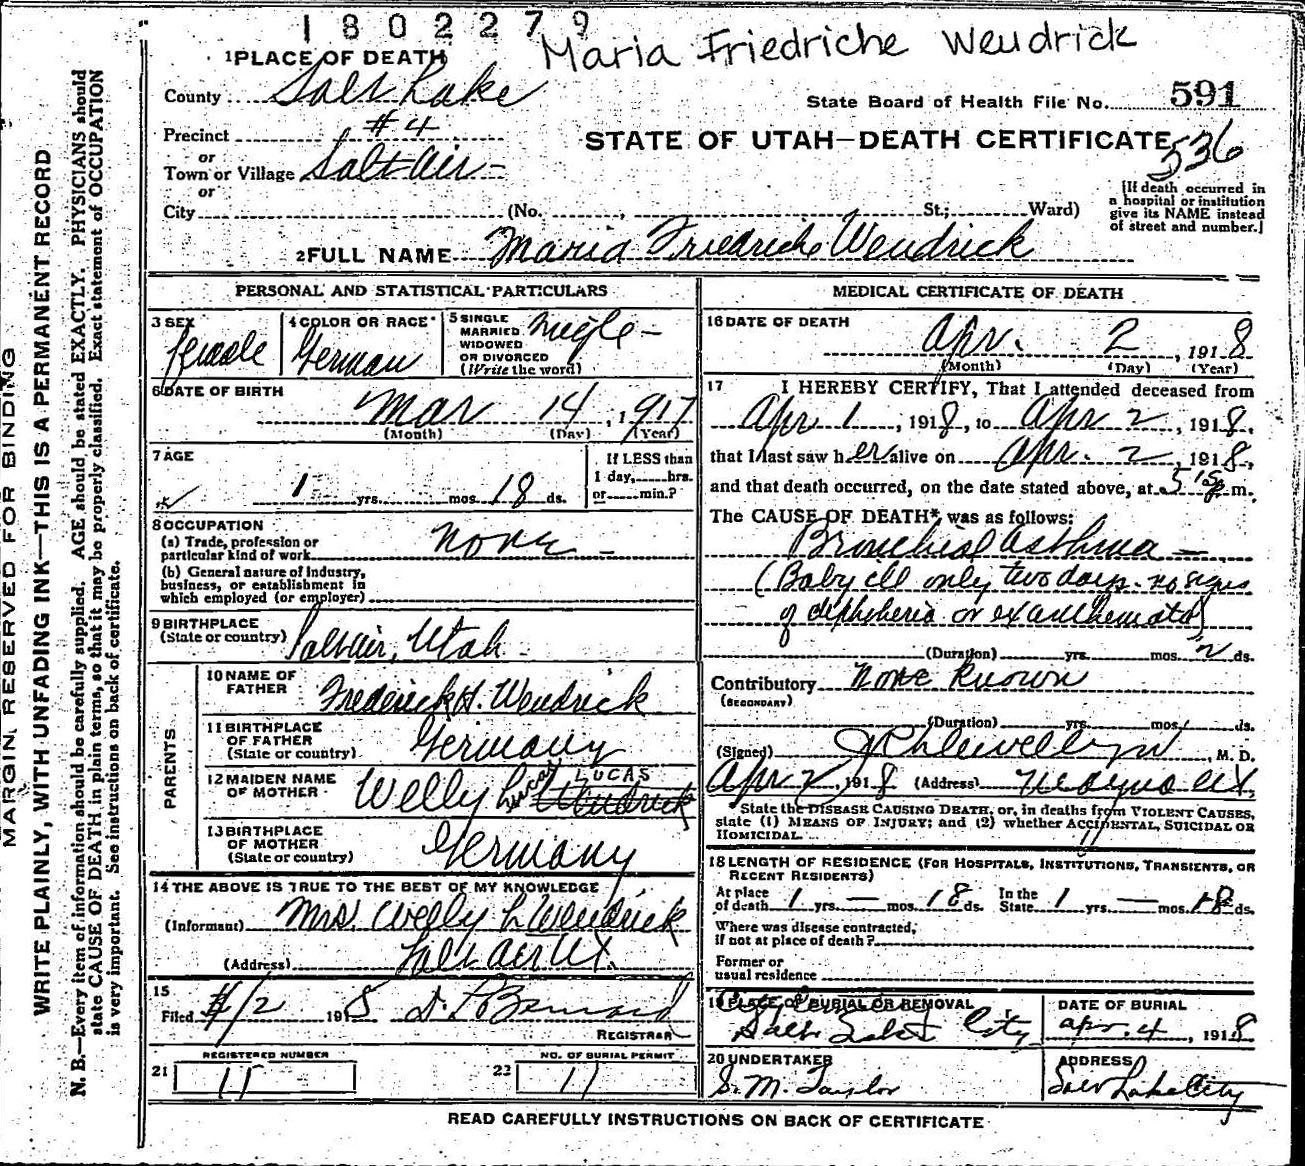 1802279
Maria Friedriche Wendrick
1 PLACE OF DEATH
County Salt Lake
State Board of Health File No. 591
Precinct #4
STATE OF UTAH—DEATH CERTIFICATE
536
or
Town or Village Saltair
or
City (No. , St.; Ward)
[If death occurred in
a hospital or institution
give its NAME instead
of street and number.]
2 FULL NAME Maria Friedriche Wendrick
PERSONAL AND STATISTICAL PARTICULARS
3 SEX female
4 COLOR OR RACE German
5 SINGLE
MARRIED
WIDOWED
OR DIVORCED
(Write the word)
single
6 DATE OF BIRTH
Mar 14, 1917
(Month) (Day) (Year)
7 AGE
1 yrs. mos. 18 ds.
If LESS than
1 day, hrs.
or min.?
8 OCCUPATION
(a) Trade, profession or
particular kind of work None
(b) General nature of Industry,
business, or establishment in
which employed (or employer)
9 BIRTHPLACE
(State or country) Saltair, Utah
PARENTS
10 NAME OF
FATHER Frederick H. Wendrick
11 BIRTHPLACE
OF FATHER
(State or country) Germany
12 MAIDEN NAME
OF MOTHER Welly Lucas LUCAS Wendrick
13 BIRTHPLACE
OF MOTHER
(State or country) Germany
14 THE ABOVE IS TRUE TO THE BEST OF MY KNOWLEDGE
(Informant) Mrs. Welly L Wendrick
(Address) Salt Air Ut.
15
Filed 4/2 1918
REGISTRAR
REGISTERED NUMBER
21 11
NO. OF BURIAL PERMIT
22 11
MEDICAL CERTIFICATE OF DEATH
16 DATE OF DEATH
Apr. 2, 1918
(Month) (Day) (Year)
17 I HEREBY CERTIFY, That I attended deceased from
Apr 1, 1918, to Apr 2, 1918,
that I last saw her alive on Apr. 2, 1918,
and that death occurred, on the date stated above, at 5 15 p m.
The CAUSE OF DEATH* was as follows:
Bronchial asthma
(Baby ill only two days. no signs
of diphtheria or exanthemata)
(Duration) yrs. mos. 2 ds.
Contributory None Known
(SECONDARY)
(Duration) yrs. mos. ds.
(Signed) Llewellyn, M. D.
Apr 2, 1918 (Address)
State the DISEASE CAUSING DEATH, or, in deaths from VIOLENT CAUSES,
state (1) MEANS OF INJURY; and (2) whether ACCIDENTAL, SUICIDAL OR
HOMICIDAL.
18 LENGTH OF RESIDENCE (FOR HOSPITALS, INSTITUTIONS, TRANSIENTS, OR
RECENT RESIDENTS)
At place
of death 1 yrs. — mos. 18 ds.
In the
State 1 yrs. — mos. 18 ds.
Where was disease contracted,
if not at place of death?
Former or
usual residence
19 PLACE OF BURIAL OR REMOVAL
Salt Lake City
DATE OF BURIAL
Apr. 4, 1918
20 UNDERTAKER
S. M. Taylor
ADDRESS
Salt Lake City
READ CAREFULLY INSTRUCTIONS ON BACK OF CERTIFICATE
MARGIN RESERVED FOR BINDING
WRITE PLAINLY, WITH UNFADING INK—THIS IS A PERMANENT RECORD
N. B.—Every item of information should be carefully supplied. AGE should be stated EXACTLY. PHYSICIANS should
state CAUSE OF DEATH in plain terms, so that it may be properly classified. Exact statement of OCCUPATION
is very important. See instructions on back of certificate.